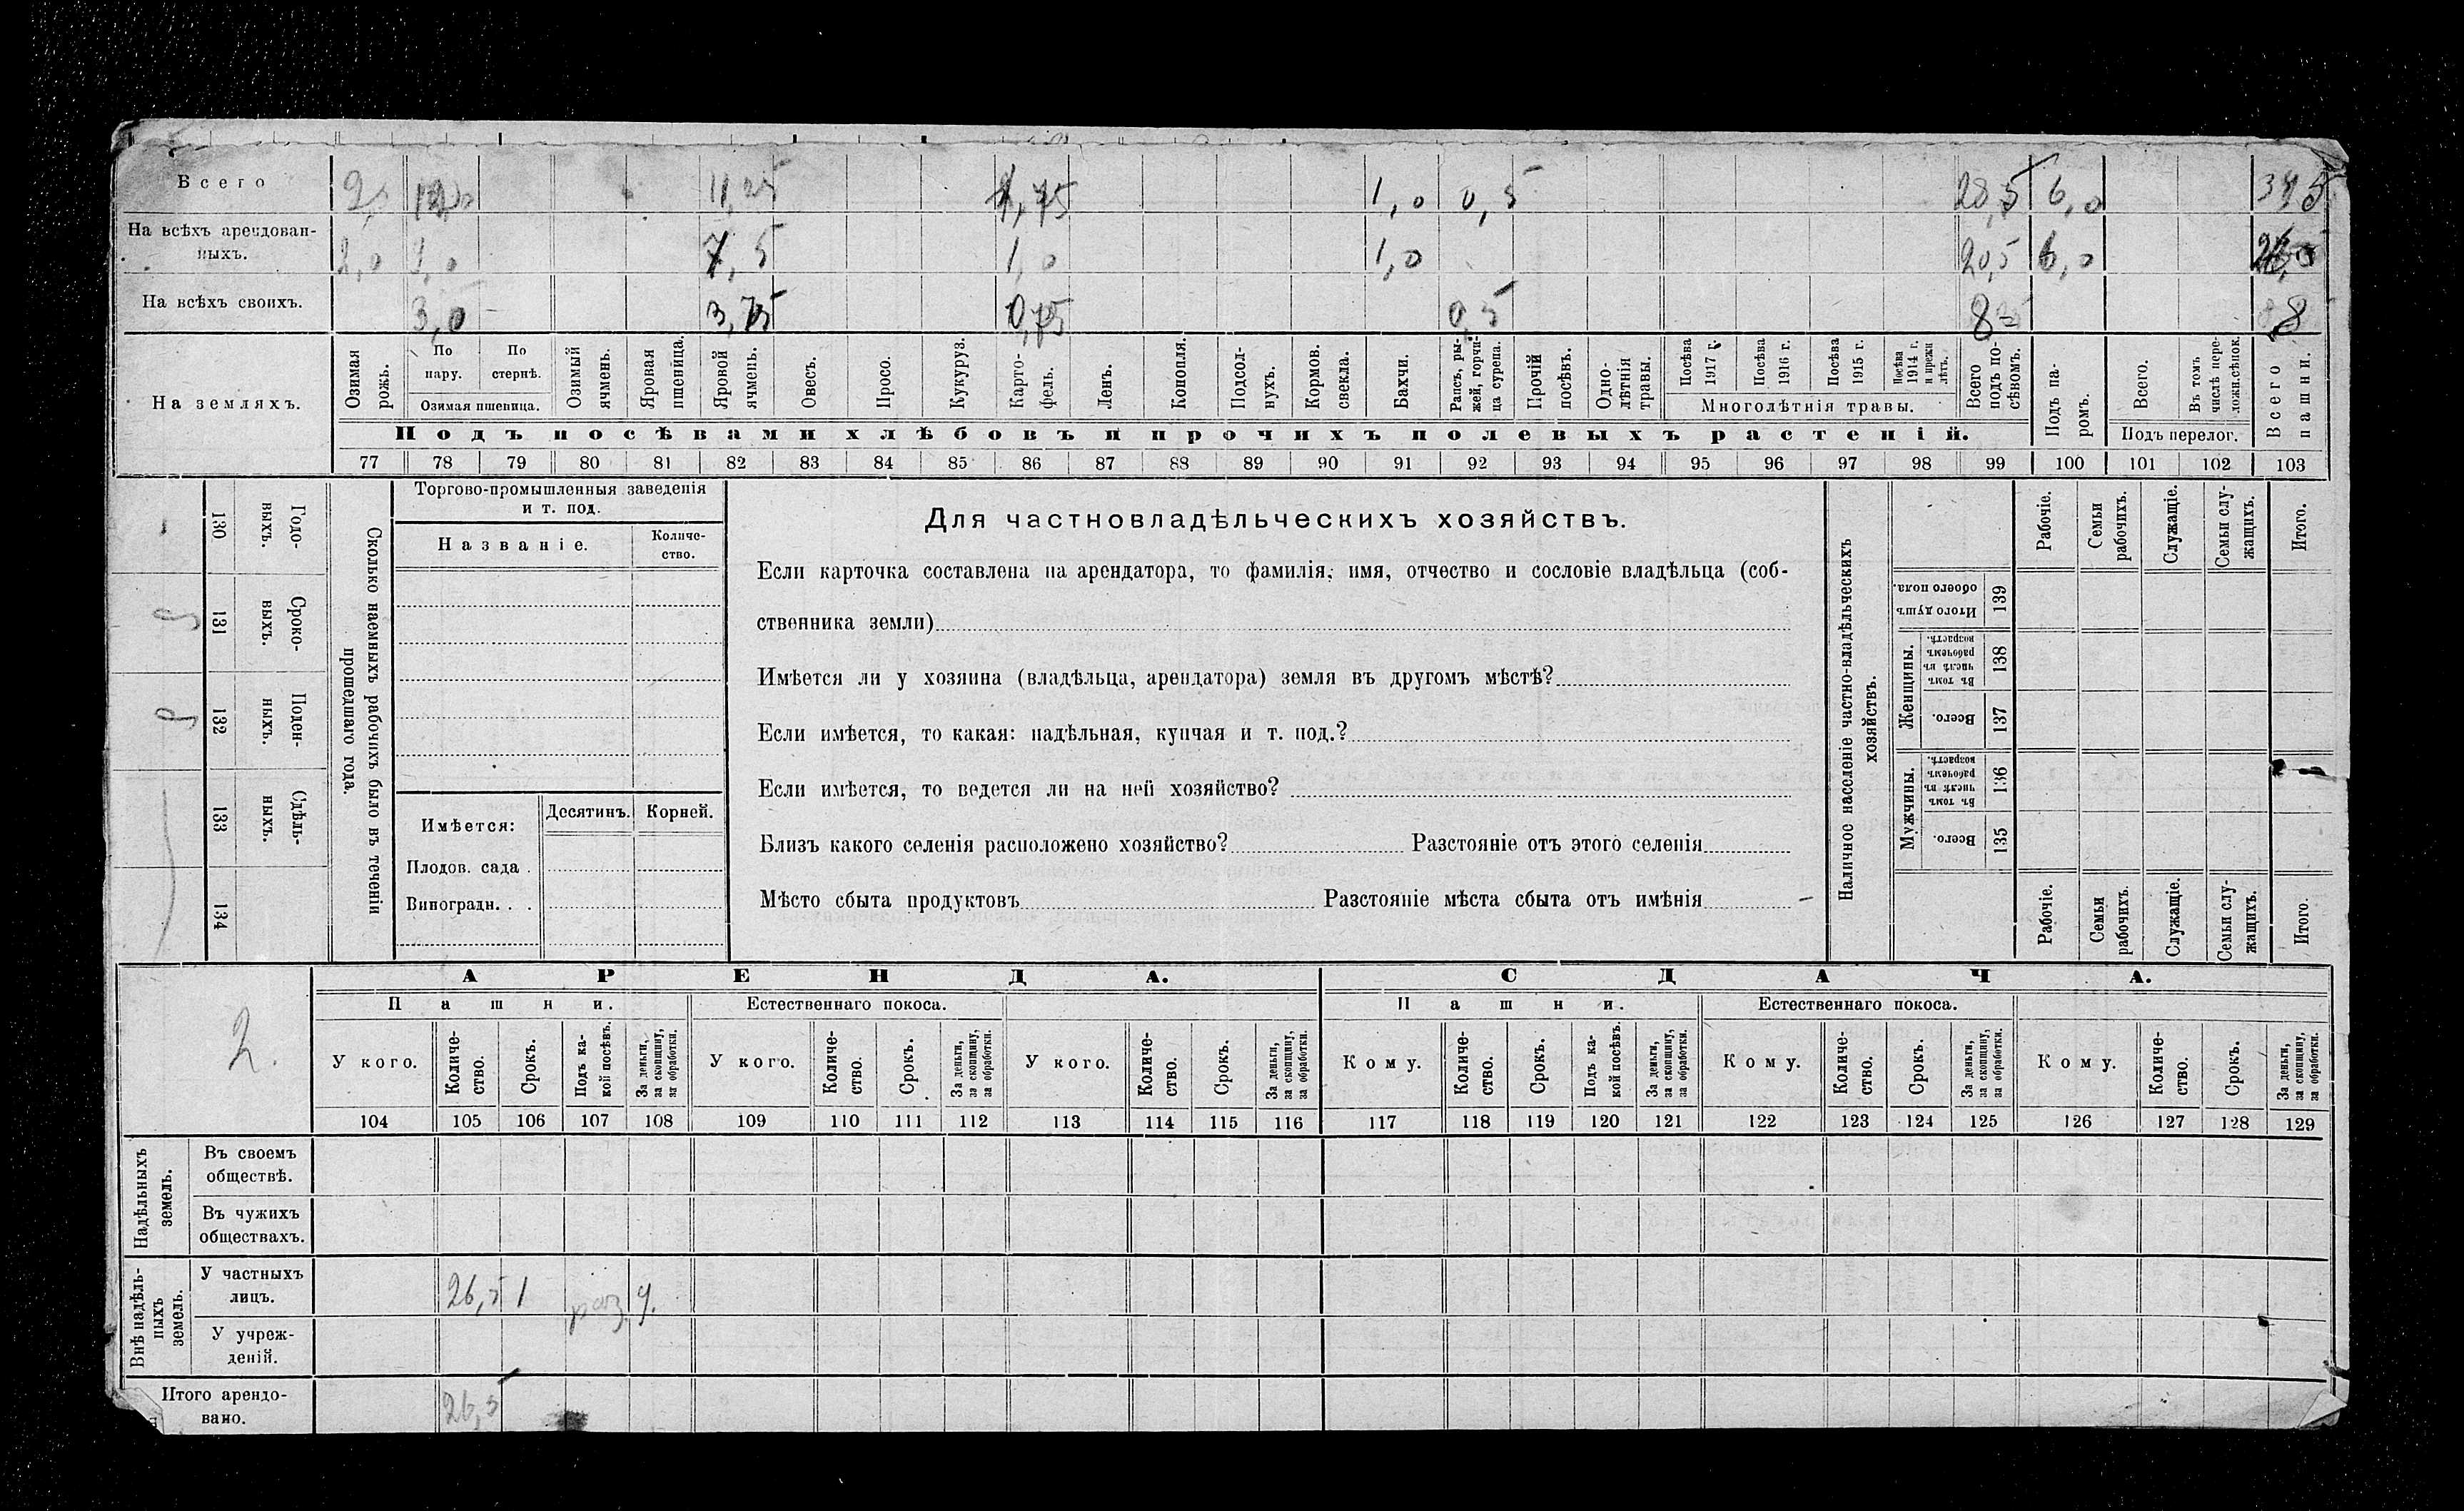 Всего 2, 12,0 11,25 1,75 1,0 0,5 28,5 6,0 34,5
На всѣхъ арендован-
ныхъ. 2,0 9,0 7,5 1,0 1,0 20,5 6,0
На всѣхъ своихъ. 3,0 3,75 0,75 0,5 8 8
На земляхъ.
Озимая рожь.
По пару.
По стернѣ.
Озимая пшеница.
Озимый ячмень.
Яровая пшеница.
Яровой ячмень.
Овесъ.
Просо.
Кукуруз.
Карто-
фель.
Ленъ.
Конопля.
Подсол-
нухъ.
Кормов. свекла.
Бахчи.
Рапсъ, ры-
жей, горчи-
ца сурепа.
Прочій посѣвъ.
Одно-
лѣтнія травы.
Посѣва 1917 г.
Посѣва 1916 г.
Посѣва 1915 г.
Посѣва 1914 г. и прежн лѣтъ.
Многолѣтнія травы.
Всего подъ по-
сѣвомъ.
Подъ па-
ромъ.
Всего.
Въ томъ числѣ пере-
ложн.сѣнок.
Подъ перелог.
Всего пашни.
Подъ посѣвами хлѣбовъ и прочихъ полевыхъ растеній.
77 78 79 80 81 82 83 84 85 86 87 88 89 90 91 92 93 94 95 96 97 98 99 100 101 102 103
Сколько наемныхъ рабочихъ было въ теченіи
прошедшаго года.
Годо-
выхъ.
130
Сроко-
выхъ.
131
Поден-
ныхъ.
132
Сдѣль-
ныхъ.
133
134
Торгово-промышленныя заведенія
и т. под.
Названіе.
Количе-
ство.
Имѣется:
Десятинъ. Корней.
Плодов. сада .
Виноградн. . .
Для частновладѣльческихъ хозяйствъ.
Если карточка составлена на арендатора, то фамилія, имя, отчество и сословіе владѣльца (соб-
ственника земли)
Имѣется ли у хозяина (владѣльца, арендатора) земля въ другомъ мѣстѣ?
Если имѣется, то какая: надѣльная, купчая и т. под.?
Если имѣется, то ведется ли на ней хозяйство?
Близъ какого селенія расположено хозяйство? Разстояніе отъ этого селенія
Мѣсто сбыта продуктовъ Разстояніе мѣста сбыта отъ имѣнія
Наличное населеніе частно-владѣльческихъ
хозяйствъ.
Рабочіе.
Семьи рабочихъ.
Служащіе.
Семьи слу-
жащихъ.
Итого.
Итого душъ обоего пола.
139
Женщины.
Въ томъ числѣ въ рабочемъ возрастѣ.
138
Всего.
137
Мужчины.
Въ томъ числѣ въ рабочемъ возрастѣ.
136
Всего.
135
Рабочіе.
Семьи рабочихъ.
Служащіе.
Семьи слу-
жащихъ.
Итого.
2.
АРЕНДА.
Пашни.
Естественнаго покоса.
У кого.
Количе-
ство.
Срокъ.
Подъ ка-
кой посѣвъ.
За деньги, за скопщину, за обработки.
У кого.
Количе-
ство.
Срокъ.
За деньги, за скопщину, за обработки.
У кого.
Количе-
ство.
Срокъ.
За деньги, за скопщину, за обработки.
СДАЧА.
Пашни.
Естественнаго покоса.
Кому.
Количе-
ство.
Срокъ.
Подъ ка-
кой посѣвъ.
За деньги, за скопщину, за обработки.
Кому.
Количе-
ство.
Срокъ.
За деньги, за скопщину, за обработки.
Кому.
Количе-
ство.
Срокъ.
За деньги, за скопщину, за обработки.
104 105 106 107 108 109 110 111 112 113 114 115 116 117 118 119 120 121 122 123 124 125 126 127 128 129
Надѣльныхъ земель.
Въ своемъ
обществѣ.
Въ чужихъ
обществахъ.
Внѣ надѣль-
ныхъ земель.
У частныхъ
лицъ. 26,5 1
У учреж-
деній.
Итого арендо-
вано. 26,5